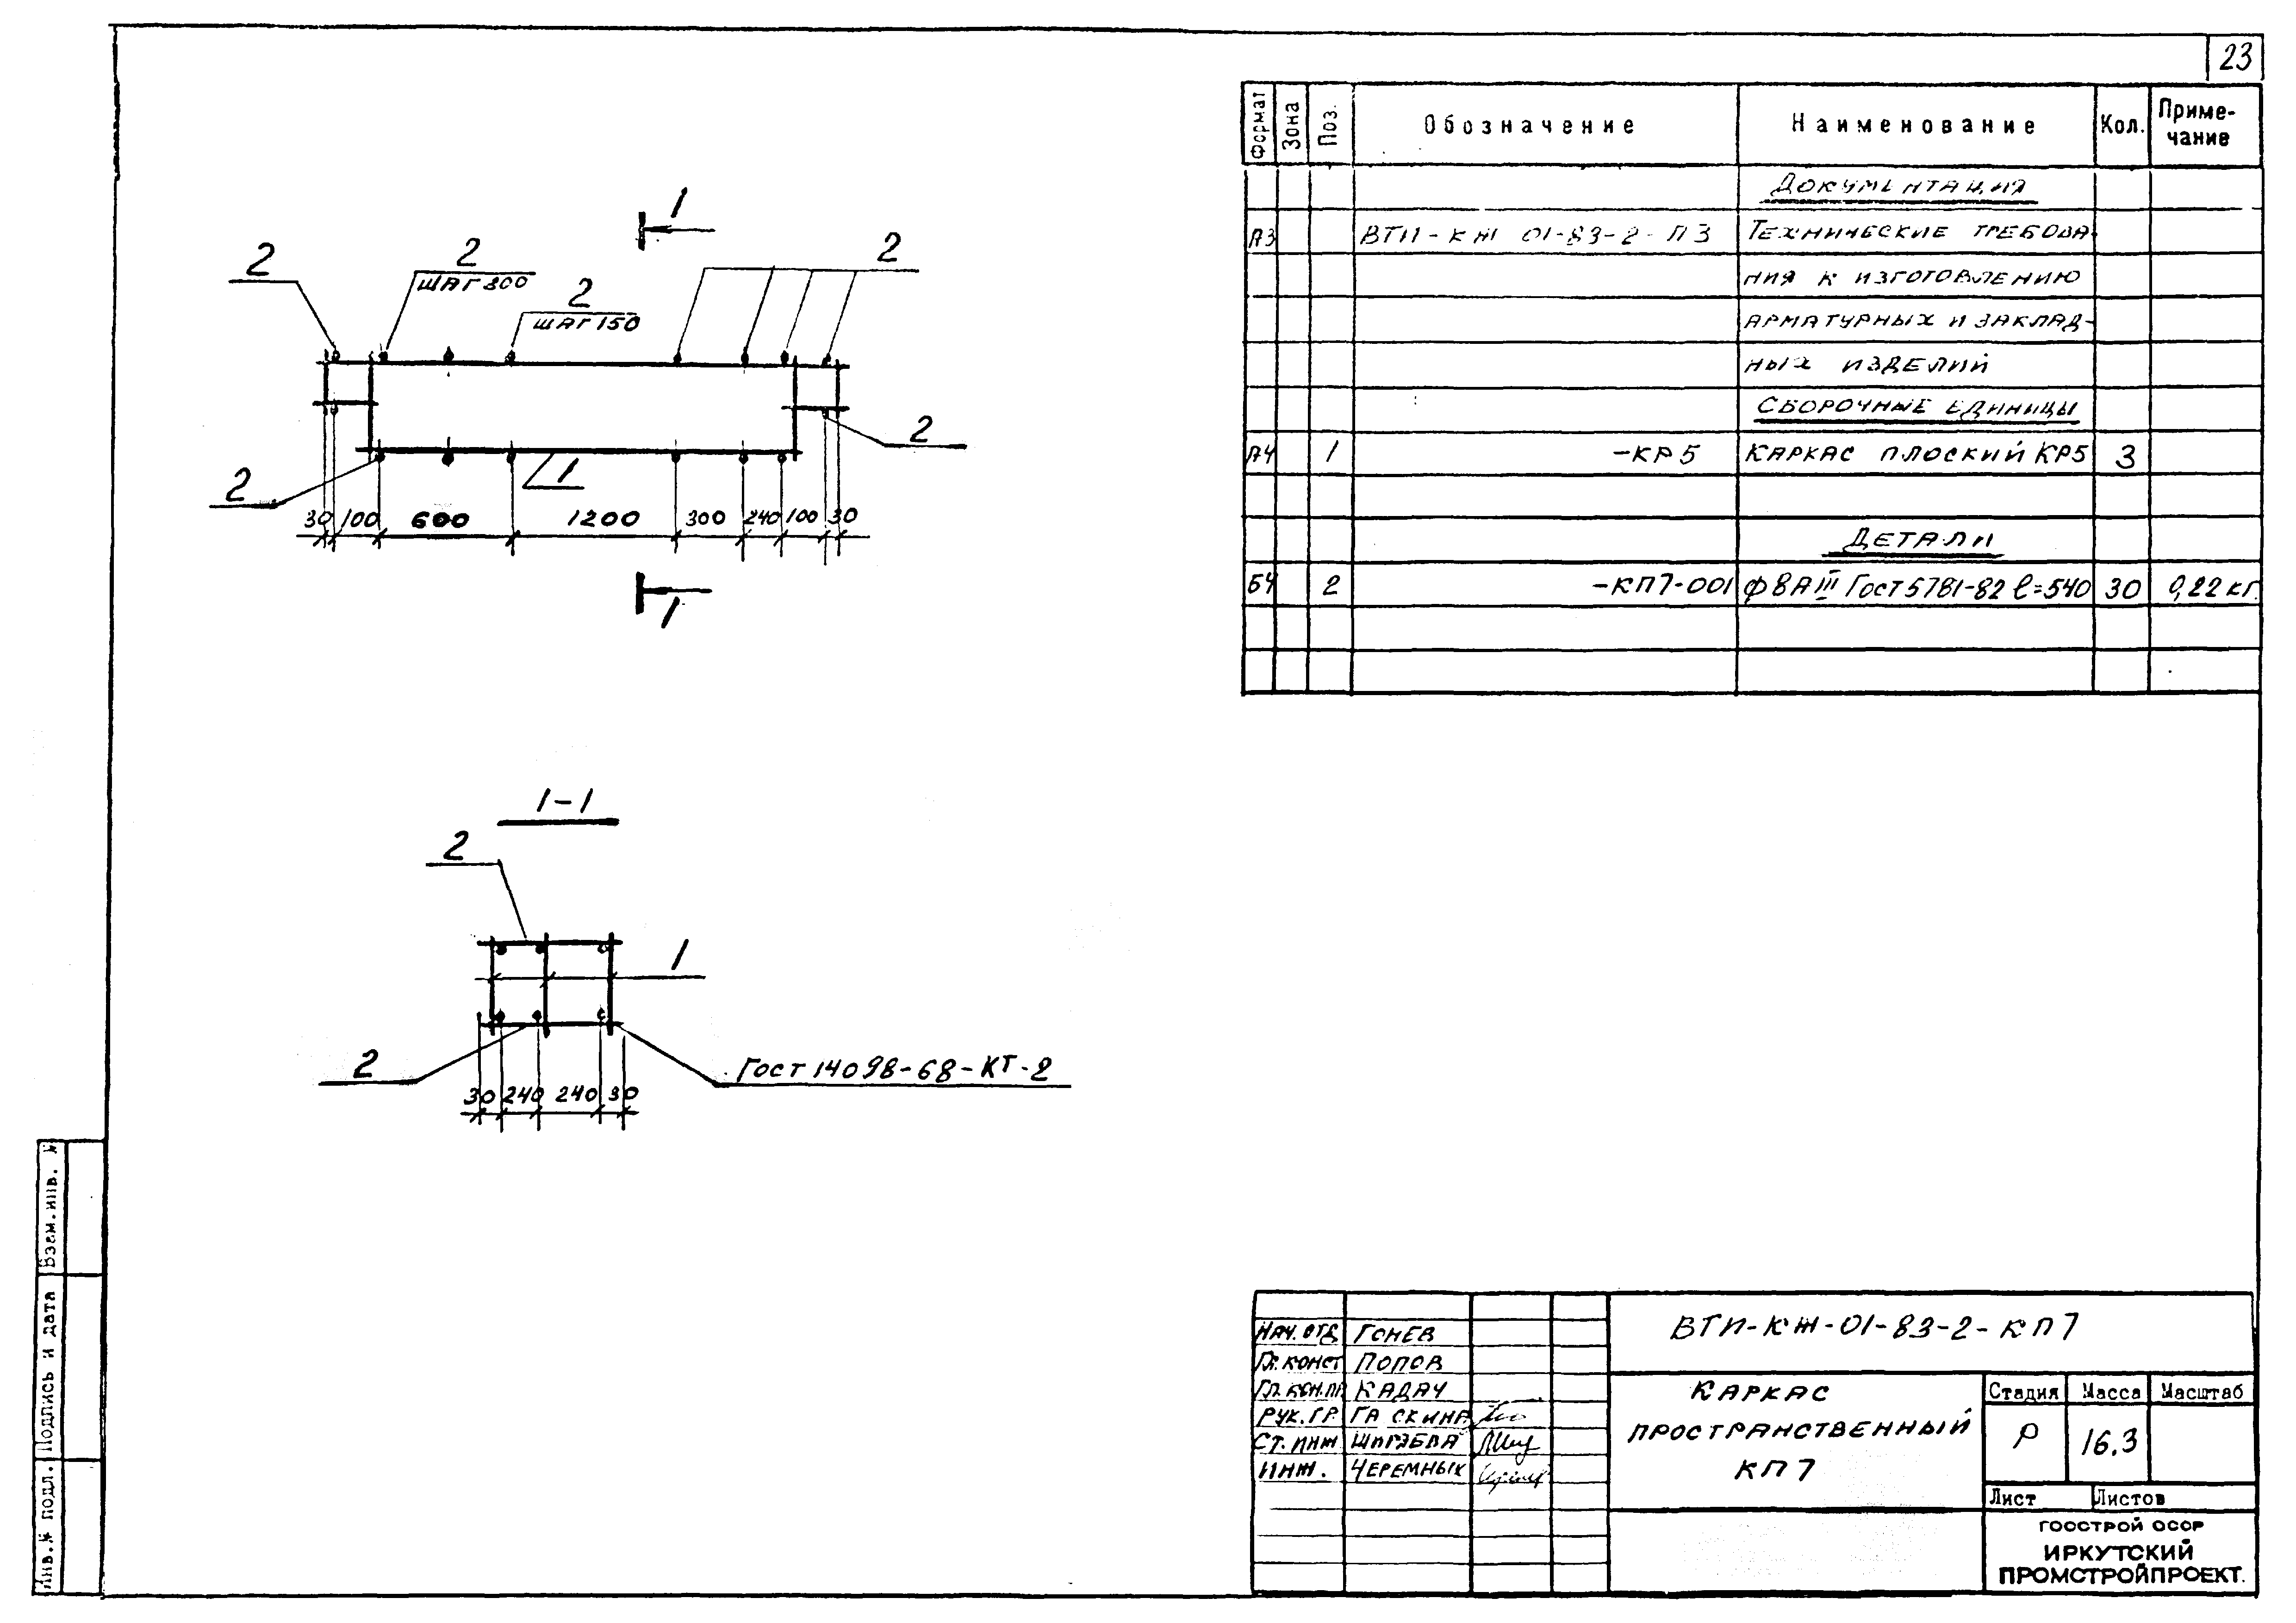 23
Формат Зона Поз. Обозначение Наименование Кол. Приме-
чание
Документация
А3 ВТИ-КЖ 01-83-2-ПЗ Технические требова-
ния к изготовлению
арматурных и заклад-
ных изделий
Сборочные единицы
А4 1 -КР5 Каркас плоский КР5 3
Детали
Б4 2 -КП7-001 ф8АIII Гост 5781-82 ℓ=540 30 0,22 кг.
1
2
2
шаг 300
2
шаг 150
2
2
2
1
30 100 600 1200 300 240 100 30
1
1-1
2
1
2
Гост 14098-68-КТ-2
30 240 240 30
Взам.инв. №
Подпись и дата
Инв.№ подл.
ВТИ-КЖ-01-83-2-КП7
Нач. отд Гонев
Гл. конст Попов
Гл. кон.пр Кадач
Рук. гр. Гаскина
Ст. инж
Инж. Черемных
Каркас
пространственный
КП7
Стадия Масса Масштаб
Р 16.3
Лист Листов
ГОССТРОЙ СССР
ИРКУТСКИЙ
ПРОМСТРОЙПРОЕКТ.